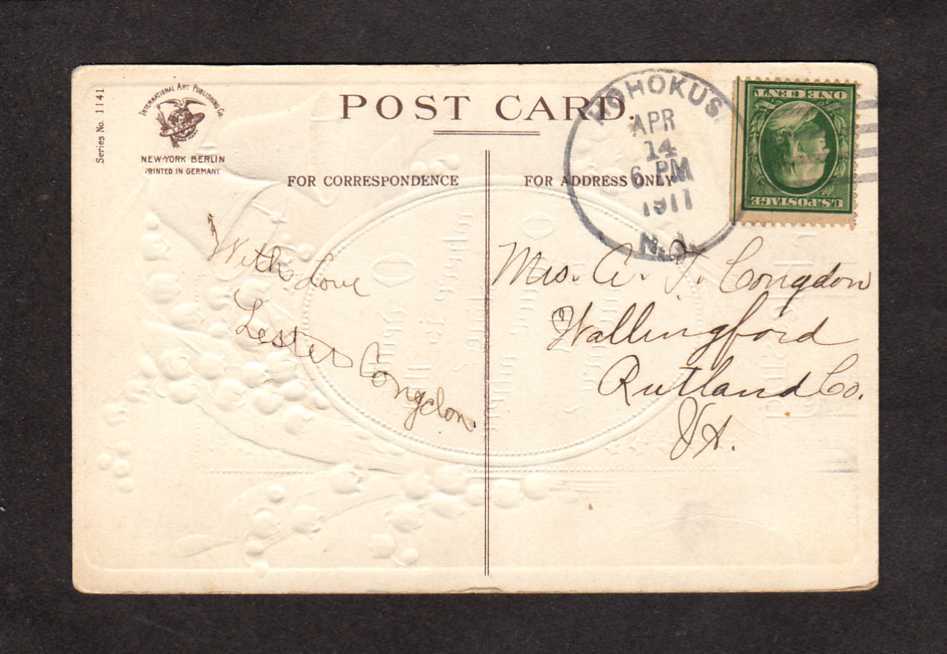 Series No. 1141
INTERNATIONAL ART PUBLISHING CO.
NEW-YORK BERLIN
PRINTED IN GERMANY
POST CARD.
HOHOKUS.
APR
14
6 PM
1911
N.J.
U.S. POSTAGE
ONE CENT
FOR CORRESPONDENCE
FOR ADDRESS ONLY
With Love
Lester Congdon.
Mrs. A. J. Congdon
Wallingford
Rutland Co.
Vt.